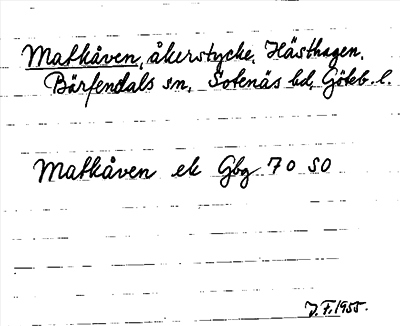 Matkåven, åkerstycke, Hästhagen,
Bärfendals sn, Sotenäs hd, Göteb. l.
Matkåven ek Gbg 70 SO
J. F. 1955.